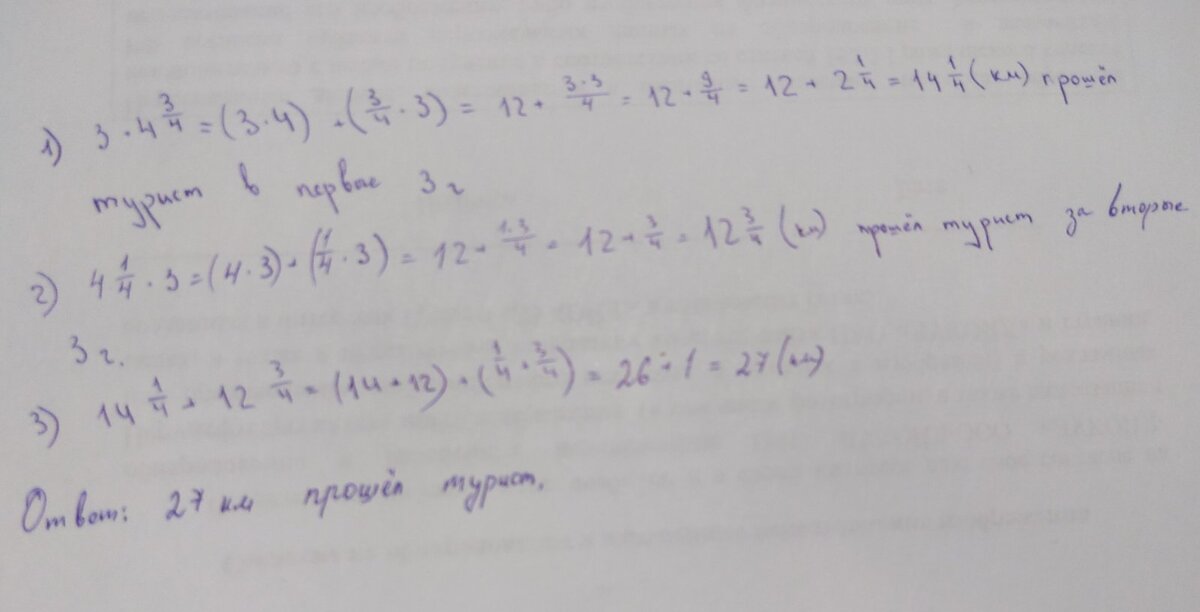 1) 3 · 4 3/4 = (3·4) + (3/4 · 3) = 12 + 3·3/4 = 12 + 9/4 = 12 + 2 1/4 = 14 1/4 (км) прошёл
турист в первые 3 г
2) 4 1/4 · 3 = (4·3) + (1/4 · 3) = 12 + 1·3/4 = 12 + 3/4 = 12 3/4 (км) прошёл турист за вторые
3 г.
3) 14 1/4 + 12 3/4 = (14 + 12) + (1/4 + 3/4) = 26 + 1 = 27 (км)
Ответ: 27 км прошёл турист.